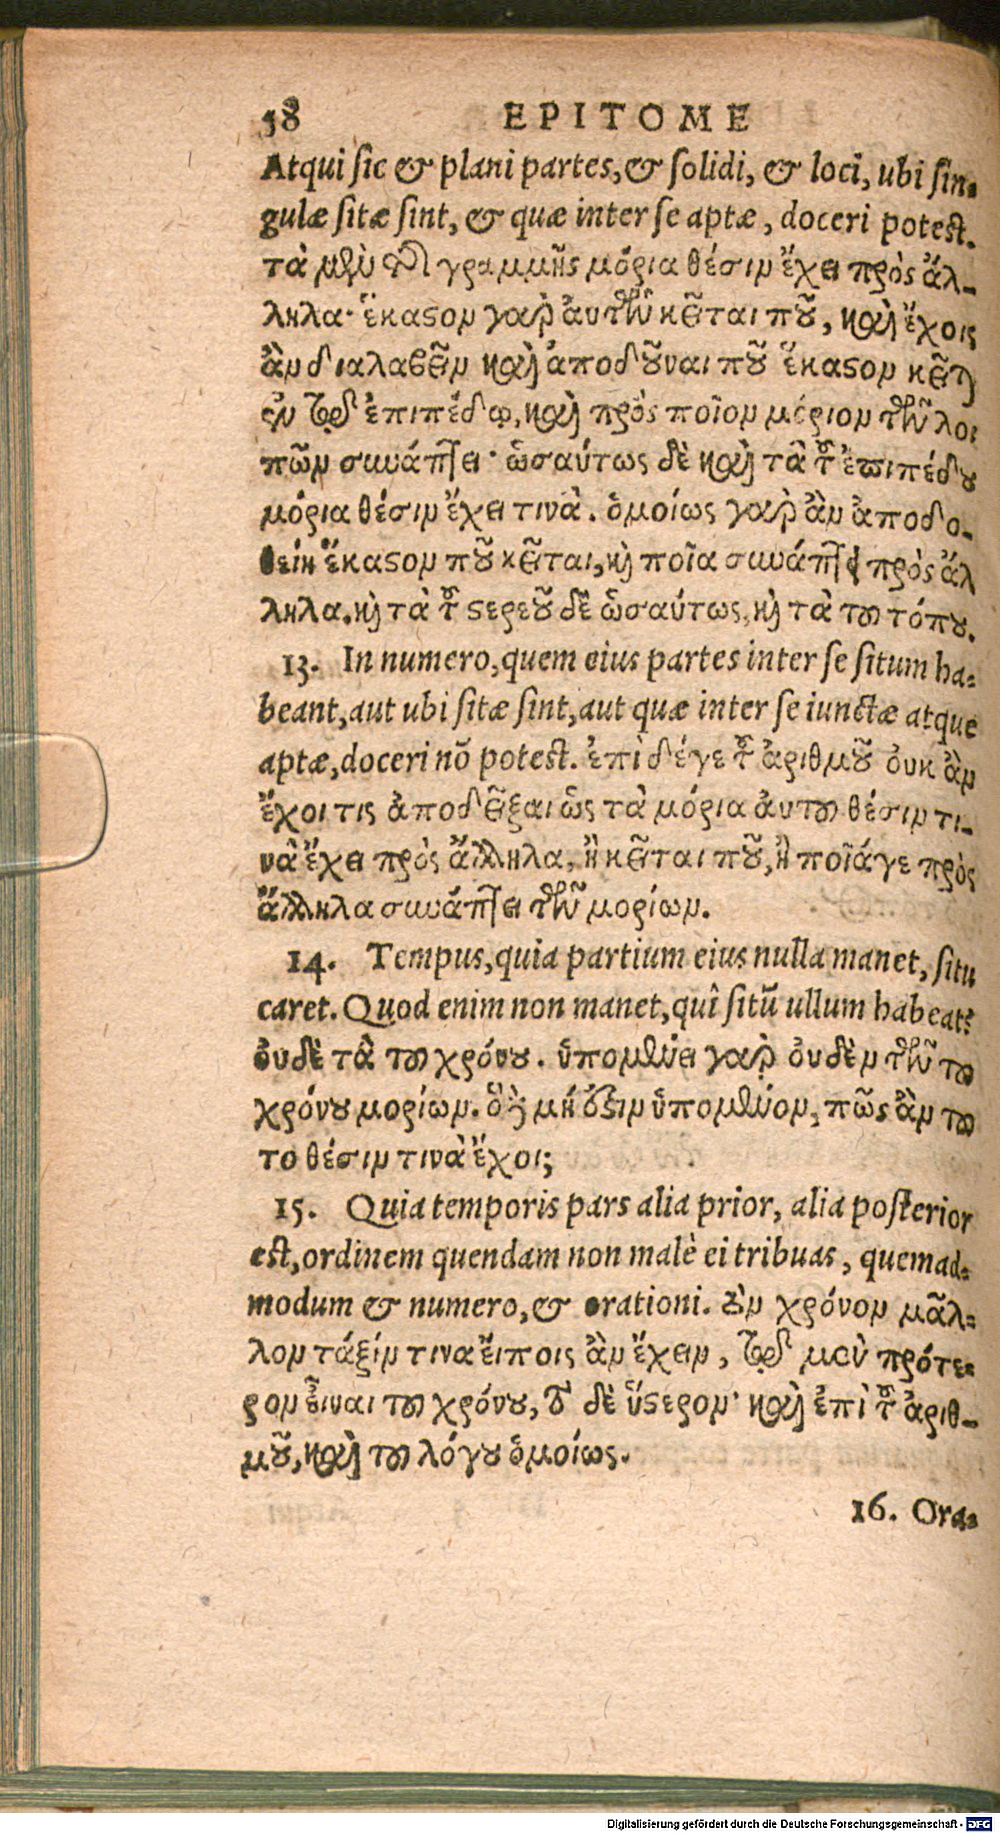 58 EPITOME
Atqui sic & plani partes, & solidi, & loci, ubi sin-
gulæ sitæ sint, & quæ inter se aptæ, doceri potest.
τὰ μὲν τῆς γραμμῆς μόρια θέσιν ἔχει πρὸς ἄλ-
ληλα· ἕκαστον γὰρ ἀυτῶν κεῖται ποῦ, καὶ ἔχοις
ἂν διαλαβεῖν καὶ ἀποδοῦναι ποῦ ἕκαστον κεῖται
ἐν τῷ ἐπιπέδῳ, καὶ πρὸς ποῖον μόριον τῶν λοι
πῶν συνάπτει· ὡσαύτως δὲ καὶ τὰ τοῦ ἐπιπέδου
μόρια θέσιν ἔχει τινὰ. ὁμοίως γὰρ ἂν ἀποδο-
θείη ἕκαστον ποῦ κεῖται, καὶ ποῖα συνάπτει πρὸς ἄλ
ληλα. καὶ τὰ τοῦ στερεοῦ δὲ ὡσαύτως, καὶ τὰ τοῦ τόπου.
13. In numero, quem eius partes inter se situm ha-
beant, aut ubi sitæ sint, aut quæ inter se iunctæ atque
aptæ, doceri nō potest. ἐπὶ δέγε τοῦ ἀριθμοῦ ὀυκ ἂν
ἔχοι τις ἀποδεῖξαι ὡς τὰ μόρια ἀυτοῦ θέσιν τι-
νὰ ἔχει πρὸς ἄλληλα, ἢ κεῖται ποῦ, ἢ ποῖάγε πρὸς
ἄλληλα συνάπτει τῶν μορίων.
14. Tempus, quia partium eius nulla manet, situ
caret. Quod enim non manet, quî sitū ullum habeat?
ὀυδὲ τὰ τοῦ χρόνου. ὑπομένει γὰρ ὀυδὲν τῶν τοῦ
χρόνου μορίων. ὃ δὲ μή ἐστιν ὑπομένον, πῶς ἂν τοῦ
το θέσιν τινὰ ἔχοι;
15. Quia temporis pars alia prior, alia posterior
est, ordinem quendam non malè ei tribuas, quemad-
modum & numero, & orationi. Ἐν χρόνον μᾶλ-
λον τάξιν τινα ἔιποις ἂν ἔχειν, τῷ μεν πρότε-
ρον ἔιναι τοῦ χρόνου, τὸ δὲ ὕστερον· καὶ ἐπὶ τοῦ ἀριθ-
μοῦ, καὶ τοῦ λόγου ὁμοίως.
16. Ora-
Digitalisierung gefördert durch die Deutsche Forschungsgemeinschaft - DFG